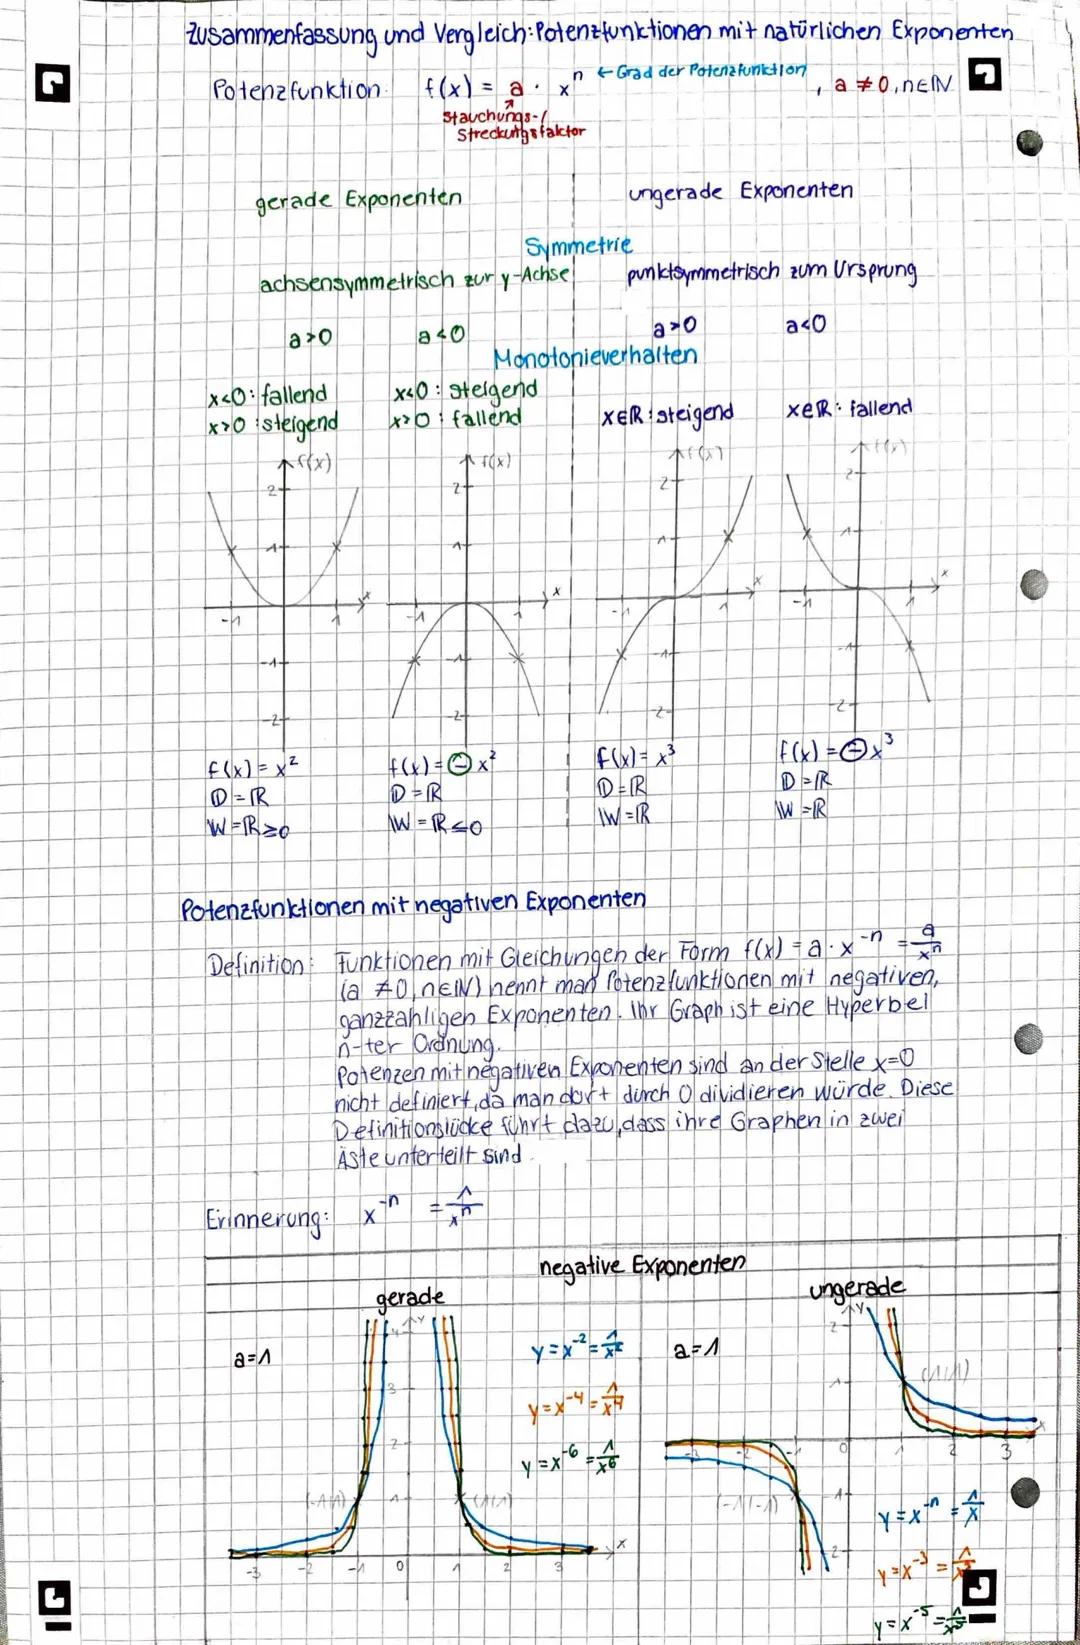 Zusammenfassung und Vergleich: Potenzfunktionen mit natürlichen Exponenten
Potenzfunktion: f(x) = a · xⁿ ← Grad der Potenzfunktion , a ≠ 0, n∈ℕ
Stauchungs-/
Streckungsfaktor
gerade Exponenten ungerade Exponenten
Symmetrie
achsensymmetrisch zur y-Achse punktsymmetrisch zum Ursprung
a>0 a<0 a>0 a<0
Monotonieverhalten
x<0: fallend x<0: steigend
x>0: steigend x>0: fallend x∈ℝ: steigend x∈ℝ: fallend
f(x) f(x) f(x) f(x)
2 2 2 2
1 1 1 1
x x x x
-1 1 -1 1 -1 1 -1 1
-1 -1 -1 -1
-2 -2 -2 -2
f(x) = x² f(x) = -x² f(x) = x³ f(x) = -x³
𝔻 = ℝ 𝔻 = ℝ 𝔻 = ℝ 𝔻 = ℝ
𝕎 = ℝ≥0 𝕎 = ℝ≤0 𝕎 = ℝ 𝕎 = ℝ
Potenzfunktionen mit negativen Exponenten
Definition: Funktionen mit Gleichungen der Form f(x) = a · x⁻ⁿ = a/xⁿ
(a ≠ 0, n∈ℕ) nennt man Potenzfunktionen mit negativen,
ganzzahligen Exponenten. Ihr Graph ist eine Hyperbel
n-ter Ordnung.
Potenzen mit negativen Exponenten sind an der Stelle x=0
nicht definiert, da man dort durch 0 dividieren würde. Diese
Definitionslücke führt dazu, dass ihre Graphen in zwei
Äste unterteilt sind.
Erinnerung: x⁻ⁿ = 1/xⁿ
negative Exponenten
gerade ungerade
a=1 y = x⁻² = 1/x² a=1
y = x⁻⁴ = 1/x⁴
y = x⁻⁶ = 1/x⁶
y
4
3
2
1
(-1|1) (1|1)
-3 -2 -1 0 1 2 3 x
y
2
1 (1|1)
-3 -2 -1 0 1 2 3 x
(-1|-1) -1
-2
y = x⁻ⁿ = 1/x
y = x⁻³ = 1/x³
y = x⁻⁵ = 1/x⁵